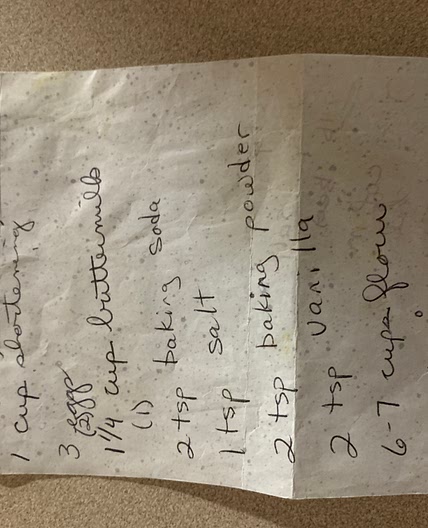 1 cup shortening
3 eggs
(2)
1 1/4 cup buttermilk
(1)
2 tsp baking soda
1 tsp salt
2 tsp baking powder
2 tsp vanilla
6-7 cups flour